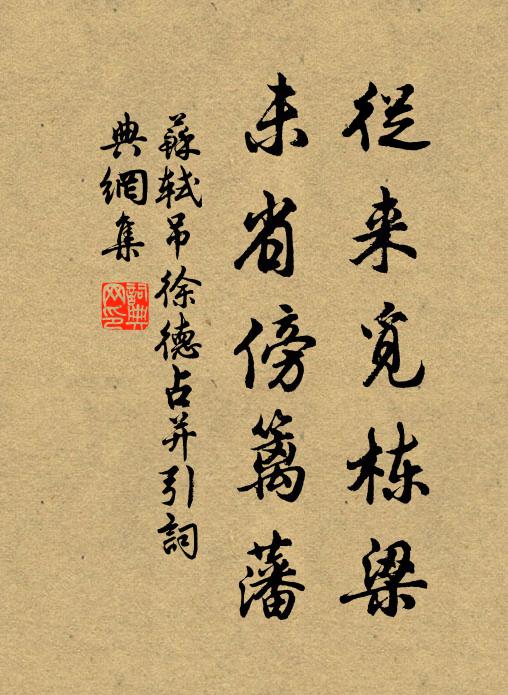 從来覓栋梁
未省傍篱藩
蘇轼吊徐德占并引詞
典網集
詞典网印